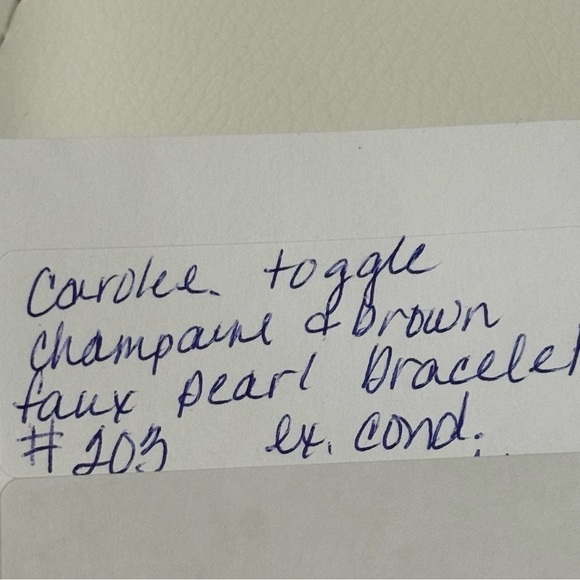 Carolee. toggle
Champaine & Brown
faux pearl Bracelet
#203 ex. cond.